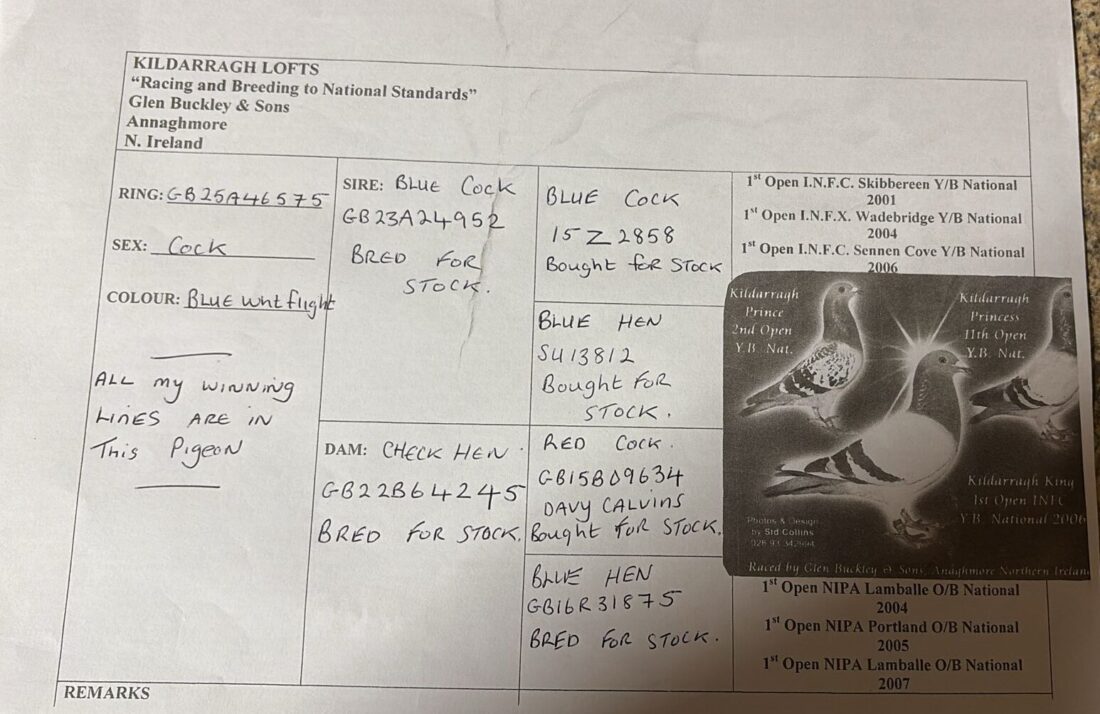 KILDARRAGH LOFTS
"Racing and Breeding to National Standards"
Glen Buckley & Sons
Annaghmore
N. Ireland
RING: GB25A46575
SEX: Cock
COLOUR: BLUE wht flight
ALL my winning
LINES ARE IN
This Pigeon
SIRE: BLUE COCK
GB23A24952
BRED FOR
STOCK.
DAM: CHECK HEN.
GB22B64245
BRED FOR STOCK.
BLUE COCK
15 Z 2858
Bought for STOCK
BLUE HEN
SU13812
Bought FOR
STOCK.
RED COCK.
GB15B09634
DAVY CALVINS
Bought FOR STOCK.
BLUE HEN
GB16R31875
BRED FOR STOCK.
1st Open I.N.F.C. Skibbereen Y/B National
2001
1st Open I.N.F.X. Wadebridge Y/B National
2004
1st Open I.N.F.C. Sennen Cove Y/B National
2006
Kildarragh
Prince
2nd Open
Y.B. Nat.
Kildarragh
Princess
11th Open
Y.B. Nat.
Kildarragh King
1st Open INFC
Y.B. National 2006
Photos & Design
by Sid Collins
Raced by Glen Buckley & Sons, Anaghmore Northern Ireland
1st Open NIPA Lamballe O/B National
2004
1st Open NIPA Portland O/B National
2005
1st Open NIPA Lamballe O/B National
2007
REMARKS